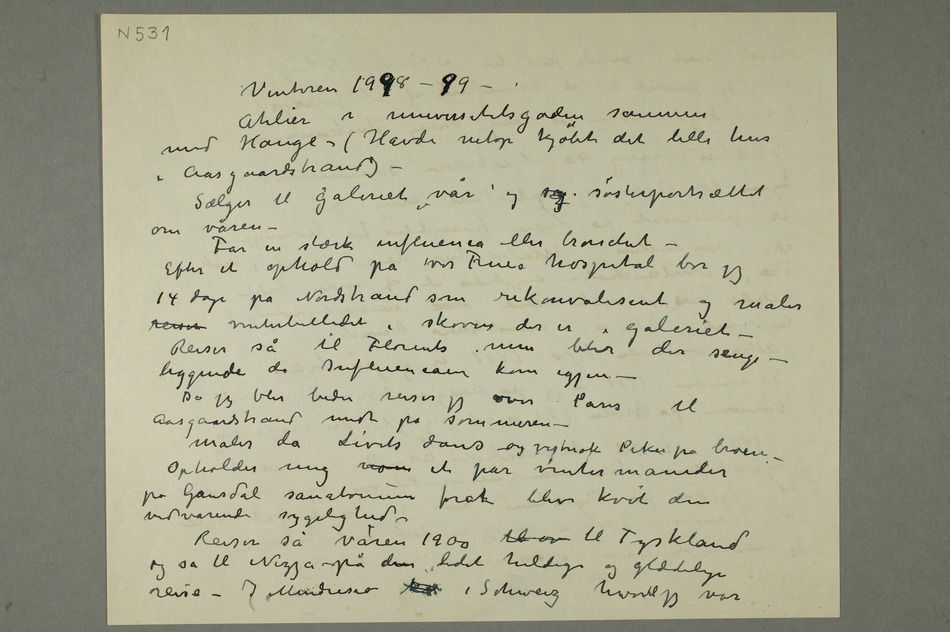 N 531
Vinteren 1998 – 99 –
Atelier i universitetsgaden sammen
med Hauge – (Havde netop kjøbt det lille hus
i Aasgaardstrand) –
Sælger til galeriet „vår" og søsterportrættet
om våren –
Får en stærk influenca eller bronchit –
Efter et ophold på vor Frues hospital bor jeg
14 dage på Nordstrand som rekonvalesent og maler
reiser vinterbilledet i skoven der er i galeriet –
Reiser så til Florents men blir der senge –
liggende da Influencaen kom igjen –
Da jeg blev bedre reiser jeg over Paris til
Aasgaardstrand midt på sommeren –
maler da Livets dans og Piker på broen –
Opholder mig et par vinter måneder
på Gausdal sanatorium for at blive kvit den
vedvarende sygelighed –
Reiser så våren 1900 til Tyskland
og så til Nizza – på den lidet heldige og glædelige
reise – I i Schweig hvor jeg var